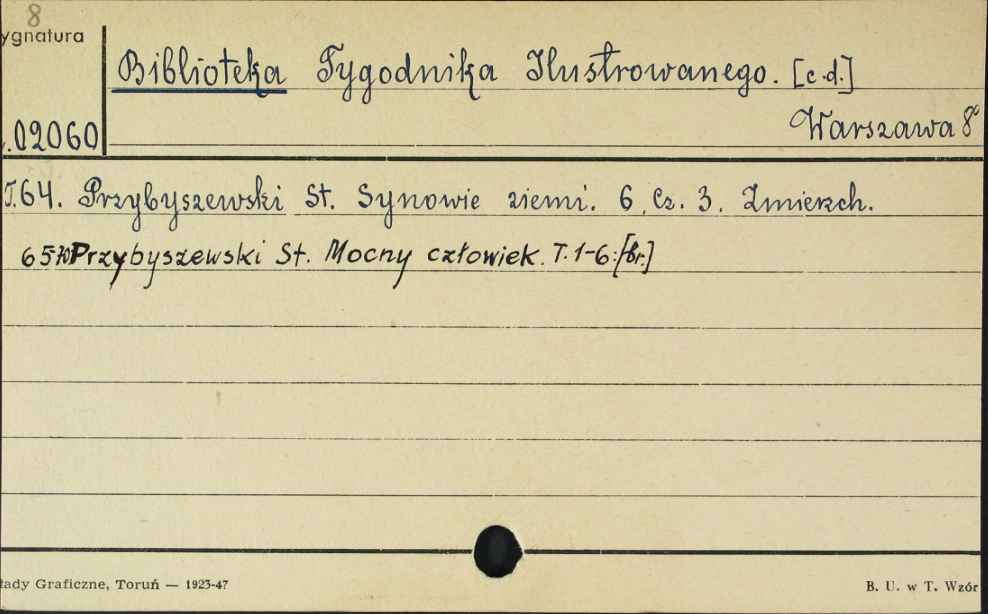 8
ygnatura
Biblioteka Tygodnika Ilustrowanego. [c.d.]
.02060
Warszawa 8°
T.64. Przybyszewski St. Synowie ziemi. 6. Cz. 3. Zmierzch.
65-70 Przybyszewski St. Mocny człowiek. T. 1-6: [br.]
łady Graficzne, Toruń — 1923-47
B. U. w T. Wzór